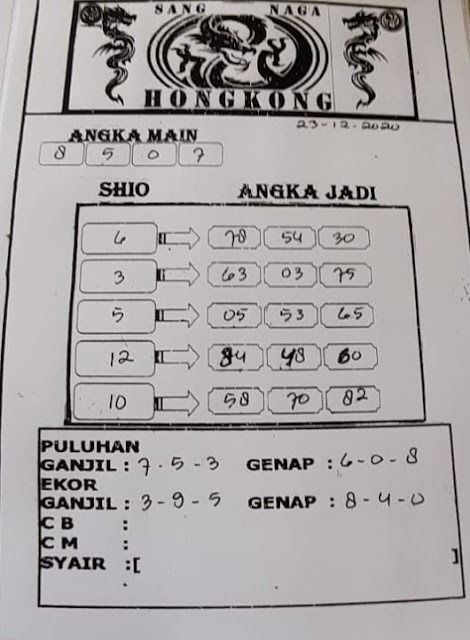 SANG NAGA
HONGKONG
23-12-2020
ANGKA MAIN
8 5 0 7
SHIO ANGKA JADI
6 78 54 30
3 63 03 75
5 05 53 65
12 84 48 60
10 58 70 82
PULUHAN
GANJIL : 7-5-3 GENAP : 6-0-8
EKOR
GANJIL : 3-9-5 GENAP : 8-4-0
C B :
C M :
SYAIR :[ ]